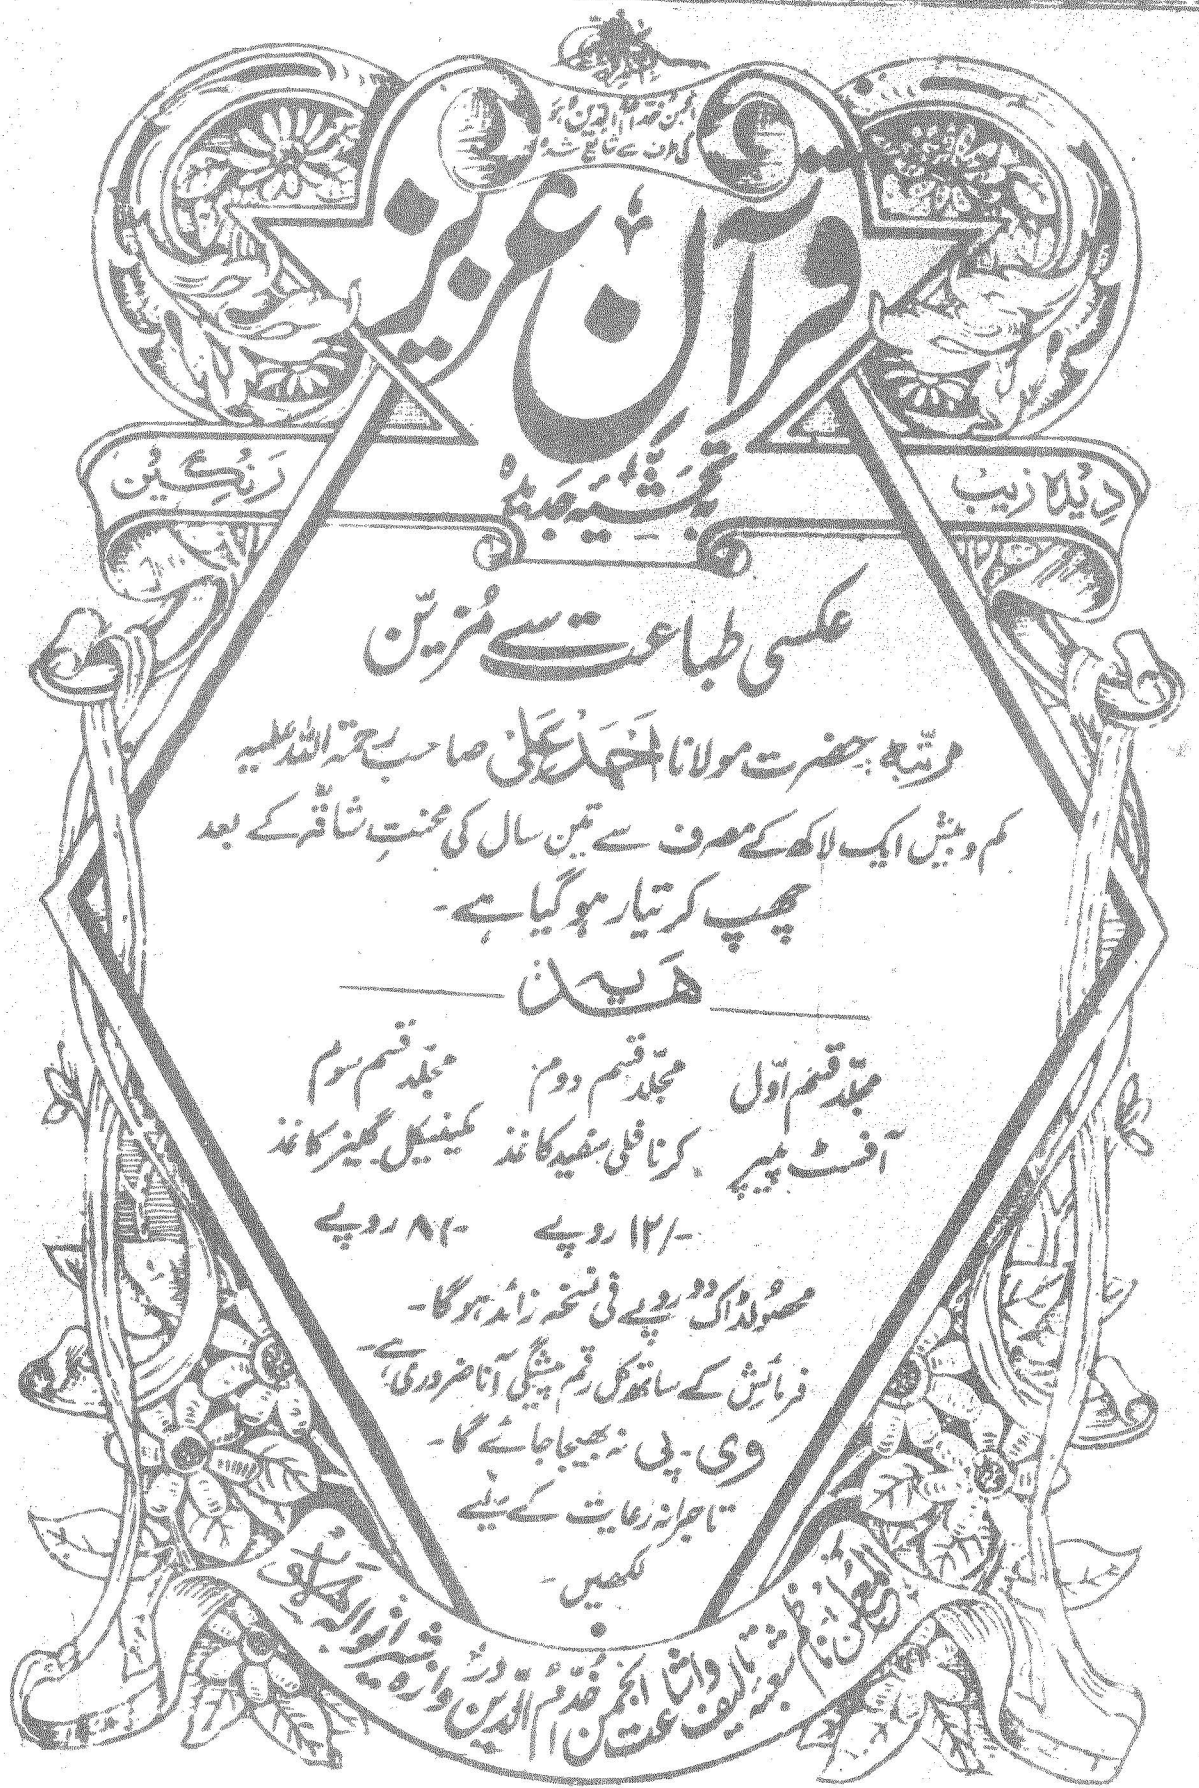 انجمن خدام الدین لاہور
کی طرف سے شائع شدہ
قرآن عزیز
دیدہ زیب
بہ تحشیۂ جدیدہ
رنگین
عکسی طباعت سے مُزیّن
مرتبہ حضرت مولانا احمد علی صاحب رحمۃ اللہ علیہ
کم و بیش ایک لاکھ کے مصرف سے تین سال کی محنتِ شاقہ کے بعد
چھپ کر تیار ہو گیا ہے۔
ھدیہ
مجلّد قسم اوّل مجلّد قسم دوم مجلّد قسم سوم
آفسٹ پیپر کرنافلی سفید کاغذ کیمیکل گلیزڈ کاغذ
۱۲/- روپے ۸/- روپے
محصولڈاک دو روپے فی نسخہ زائد ہوگا۔
فرمائش کے ساتھ کل رقم پیشگی آنا ضروری ہے۔
وی۔ پی نہ بھیجا جائے گا۔
تاجرانہ رعایت کے لئے
لکھیں۔
المعلن ناظم شعبہ تالیف و اشاعت انجمن خدام الدین دروازہ شیرانوالہ لاہور